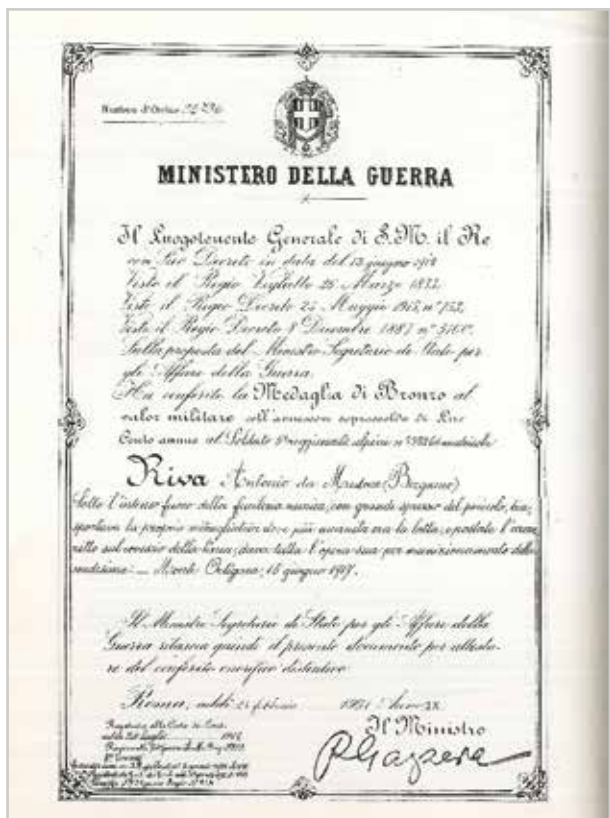 Numero d'Ordine
MINISTERO DELLA GUERRA
Il Luogotenente Generale di S.M. il Re
con Suo Decreto in data del 13 giugno 1918
Visto il Regio Viglietto 26 Marzo 1833
Visto il Regio Decreto 25 Maggio 1915, n° 753,
Visto il Regio Decreto 8 Dicembre 1887 n° 5100.
Sulla proposta del Ministro Segretario di Stato per
gli Affari della Guerra
Ha conferito la Medaglia di Bronzo al
valor militare coll'annesso soprassoldo di Lire
Cento annue al Soldato 5° reggimento alpini n° matricola
Riva Antonio da (Bergamo)
Sotto l'intenso fuoco della fucileria nemica, con grande sprezzo del pericolo, tra-
sportava la propria mitragliatrice dove più accanita era la lotta, e postata l'arma
sul della linea, dava tutta l'opera sua pel munizionamento della
medesima. Monte Ortigara, 15 giugno 1917.
Il Ministro Segretario di Stato per gli Affari della
Guerra rilascia quindi il presente documento per attesta-
re del conferito onorifico distintivo
Roma, addì 24 febbraio 1931 Anno IX
Il Ministro
Registrato alla Corte dei Conti
addì luglio
PGazzera